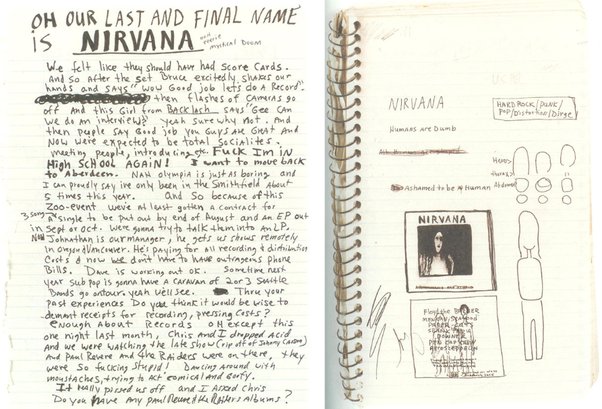 OH OUR LAST AND FINAL NAME
is NIRVANA
mystical Doom
We felt like they should have had score cards.
And so after the set Bruce excitedly shakes our
hands and says "wow Good job lets do A Record".
then flashes of cameras go
off And this Girl from BackLash says "Gee can
we do an interview"? yeah sure why not. And
then people say Good job you guys are Great And
NOW were expected to be total socialites.
meeting people, introducing etc. Fuck Im in
HIGH SCHOOL AGAIN! I want to move back
to Aberdeen. NAH olympia is just as boring and
I can proudly say ive only been in the Smithfield about
5 times this year. And so because of this
ZOO-event weve At least gotten a contract for
3 song
A single to be put out by end of August and an EP out
in Sept or oct. were gonna try to talk them into an LP.
Now Johnathan is our manager, he gets us shows remotely
in oregon & Vancouver. He's paying for all recording & distribution
Costs & now we don't have to have outrageous phone
Bills. Dave is working out OK. Sometime next
year Sub pop is gonna have A CARAVAN of 2 or 3 Seattle
Bands go on tour. yeah well see. Thru your
past experiences Do you think it would be wise to
demand receipts for recording, pressing Costs?
enough About Records oH except this
one night last month, Chris and I dropped acid
And we were watching the late show (rip off of Johnny Carson)
and Paul Revere and the Raiders were on there. they
were So fucking Stupid! Dancing around with
moustaches, trying to act comical and Goofy.
It really pissed us off and I Asked Chris
Do you have Any Paul Revere & the Raiders Albums?
NIRVANA
HARD ROCK/PUNK/
POP/Distortion/Dirge
Humans are Dumb
Ashamed to be A Human
Heads
thorax
Abdomen
NIRVANA
Floyd the BARBER
PAPER CUTS
DOWNER
PEN CAP CHEW
AEROZEPPELIN